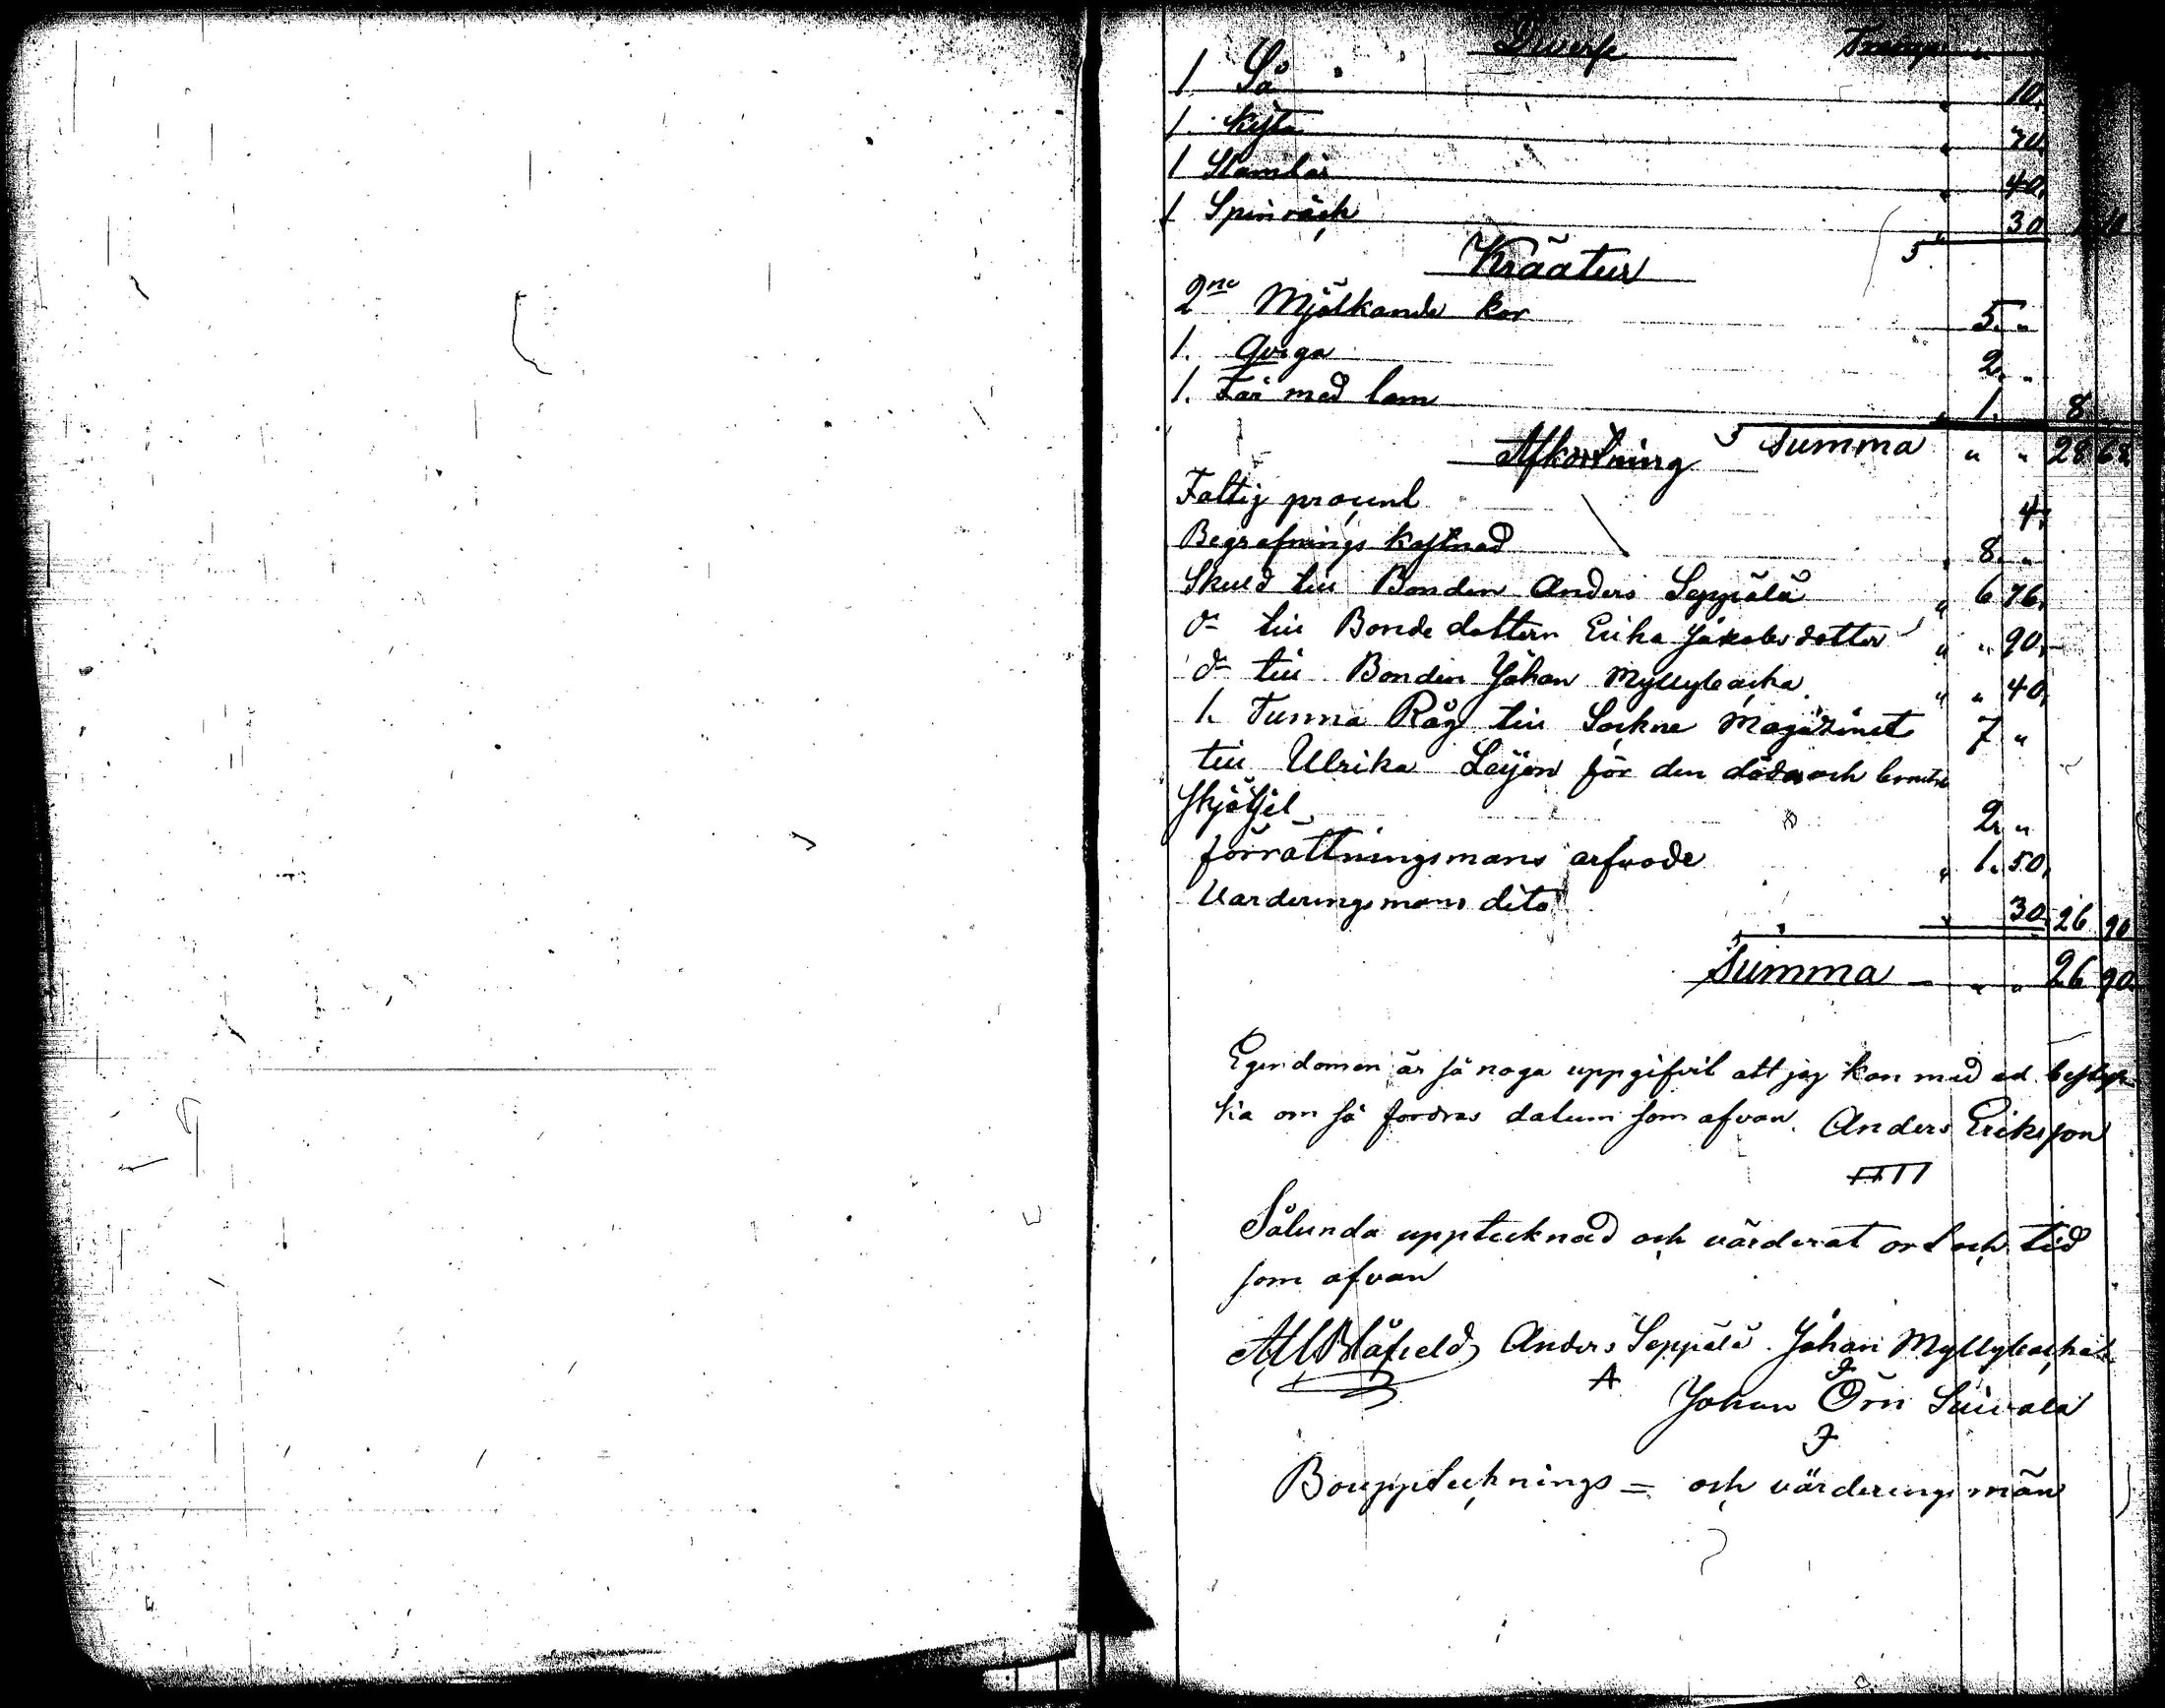 Diverse Transp
1 Så " 10.
1. kista " 30.
1 Stamkar " 40.
1 Spinråck " 30 1 10
Kräatur
2ne Mjölkande kor 5. "
1. Qviga 2. "
1. Får med lam " 1. 8
Afkortning Summa " " 28 68
Fattig procent 4.
Begrafnings kostnad " 8. "
Skuld till Bonden Anders Seppälä " 6 76.
do till Bonde dottern Erika Jakobsdotter " " 90.
do till Bonden Johan Myllybacka " " 40.
1. Tunna Råg till Sockne Magazinet 7 "
till Ulrika Leijon för den döda och
skjötsel 2. "
förrättningsmans arfvode " 1. 50.
Varderingsmans dito " 30 26 90
Summa - " " 26 90.
Egendomen är så noga uppgifvit att jag kan med ed bestyr-
ka om så fordras datum som ofvan. Anders Eriksson
Sålunda upptecknad och värderat ort och tid
som ofvan
Blåfield Anders Seppälä. Johan Myllybacka
A J
Johan Örn Suivala
J
Bouppteknings = och värderingsmän